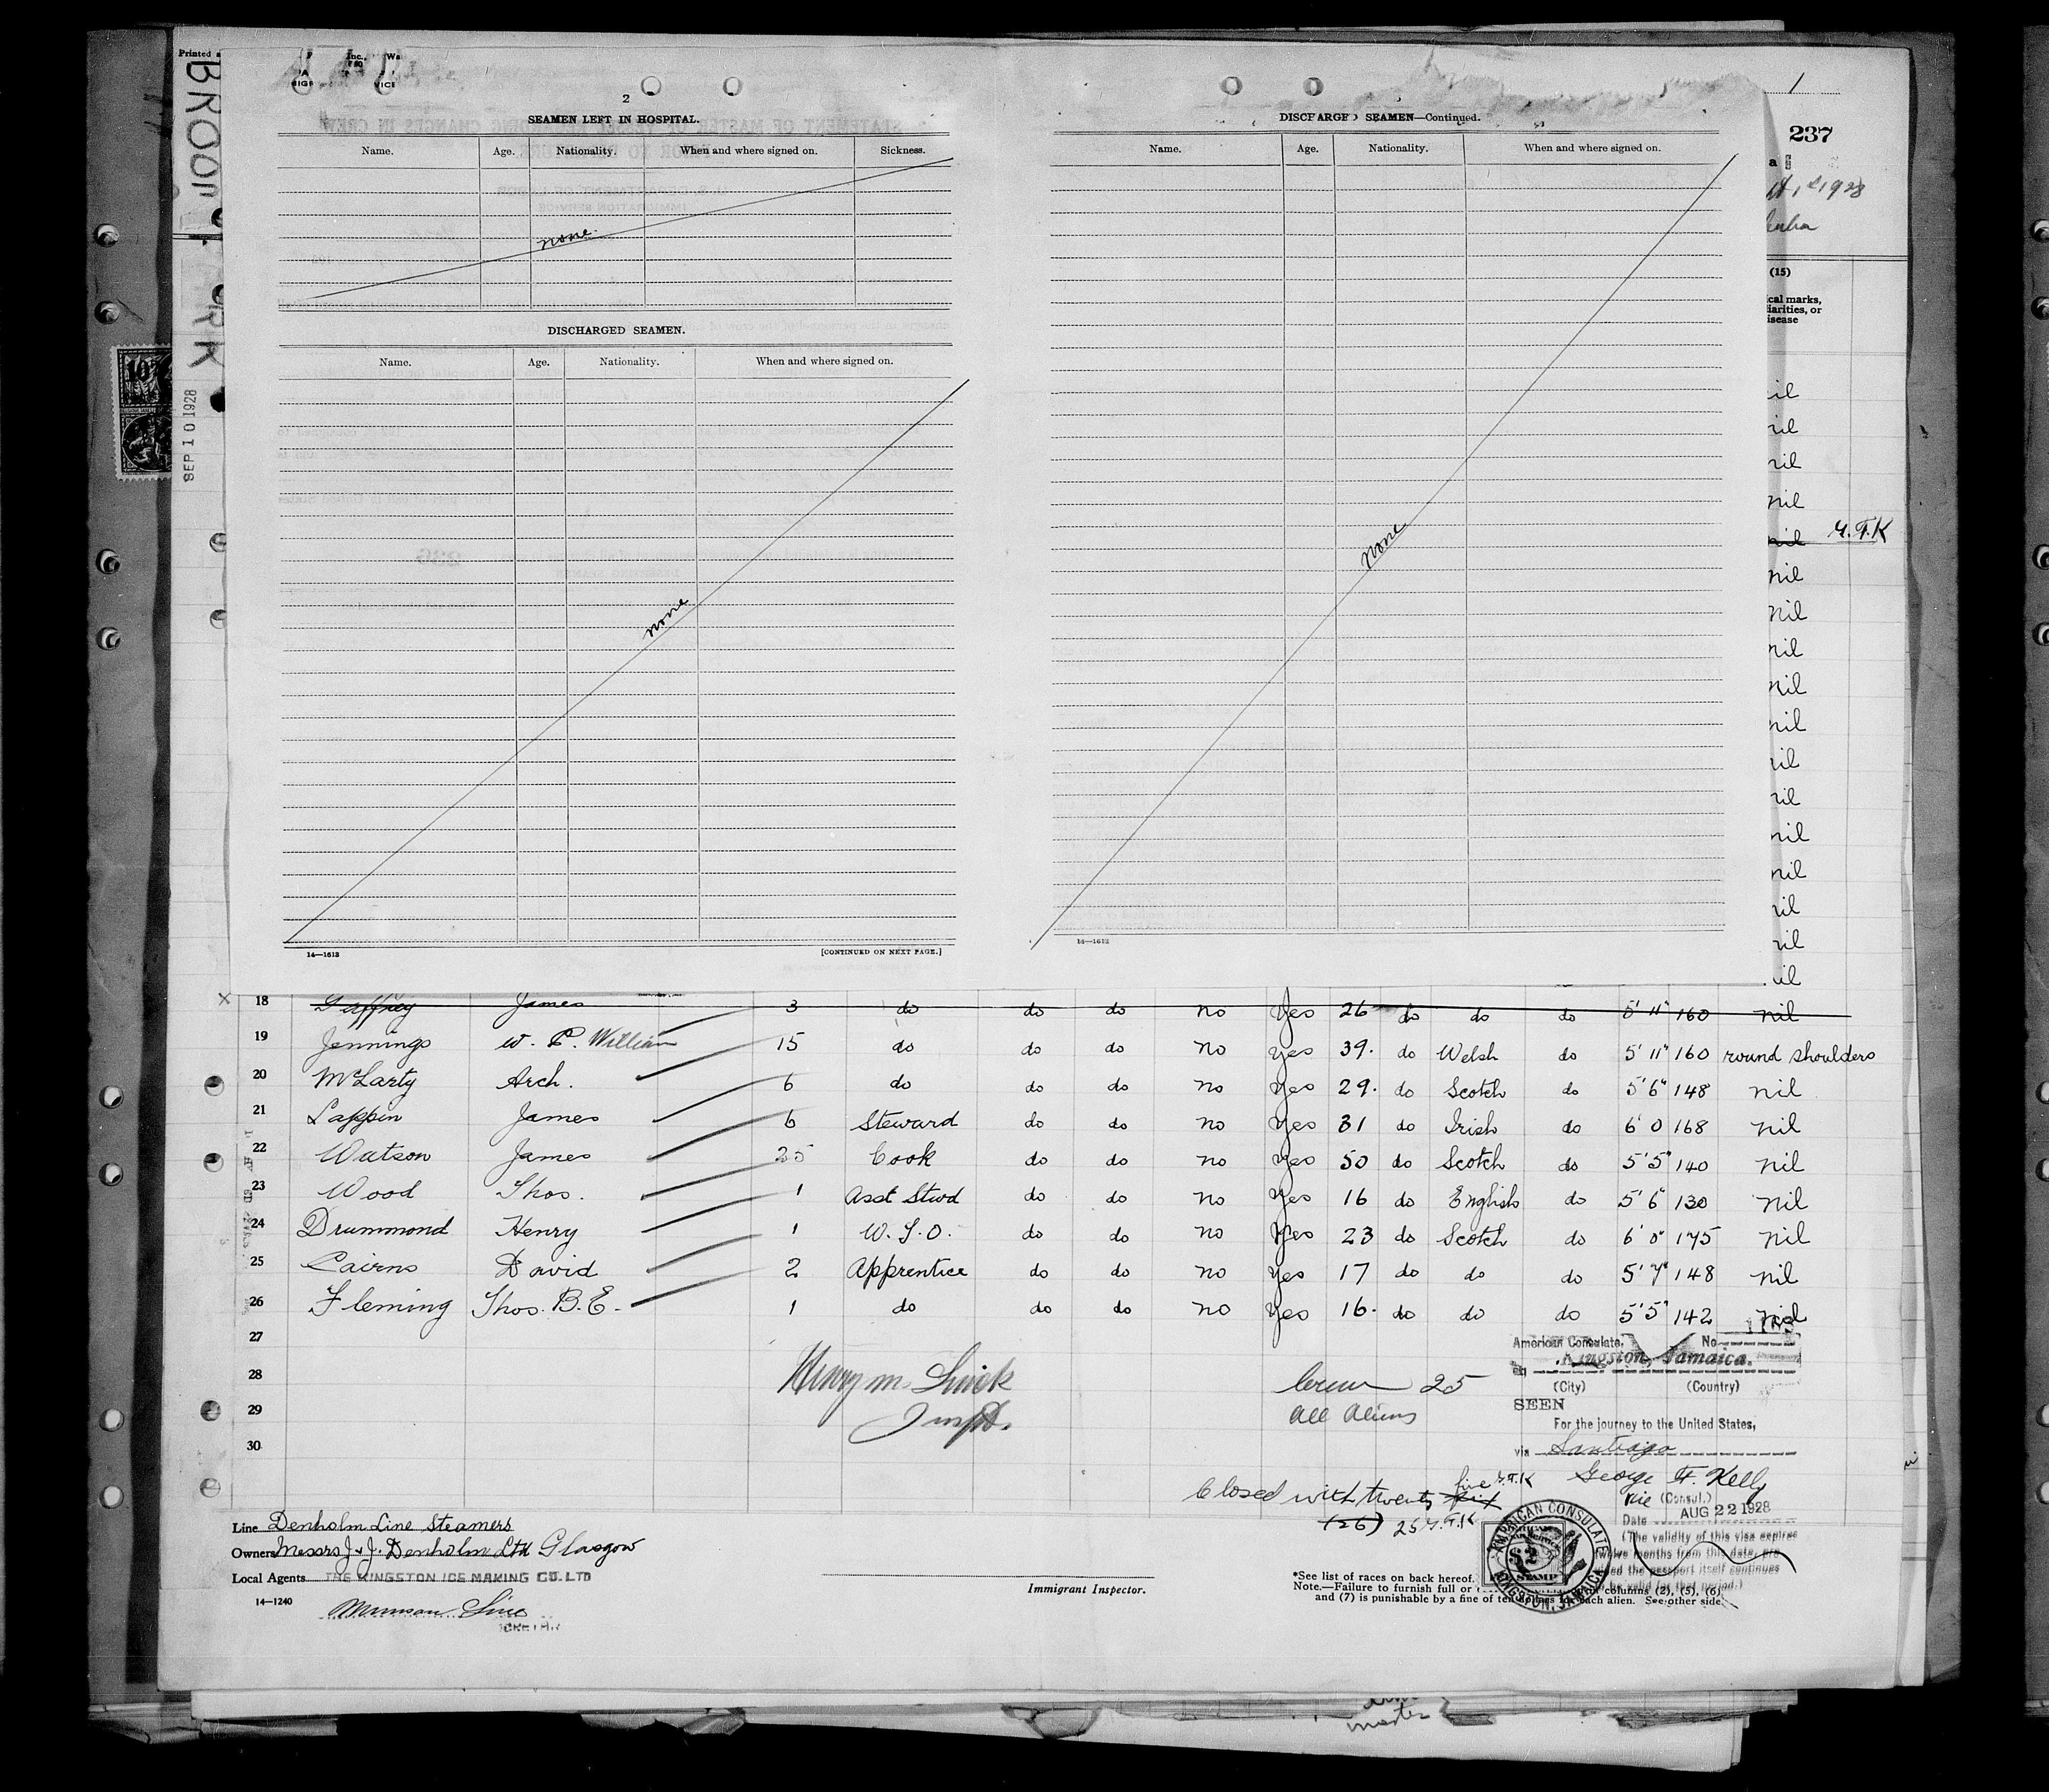 Printed
BROOKLYN
SEP 10 1928
2
SEAMEN LEFT IN HOSPITAL.
Name. Age. Nationality. When and where signed on. Sickness.
none.
DISCHARGED SEAMEN.
Name. Age. Nationality. When and where signed on.
none
14—1613
[CONTINUED ON NEXT PAGE.]
DISCHARGED SEAMEN—Continued.
Name. Age. Nationality. When and where signed on.
none
14—1613
1
237
1928
Cuba
(15)
ical marks,
liarities, or
isease
nil
nil
nil
nil
nil G.F.K
nil
nil
nil
nil
nil
nil
nil
nil
nil
nil
nil
nil
18 Gaffney James 3 do do do no yes 26 do do do 5' 11" 160 nil
19 Jennings W. C. William 15 do do do no yes 39. do Welsh do 5' 11" 160 round shoulders
20 McLarty Arch. 6 do do do no yes 29. do Scotch do 5' 6" 148 nil
21 Lappin James 6 Steward do do no yes 31 do Irish do 6' 0 168 nil
22 Watson James 25 Cook do do no yes 50 do Scotch do 5' 5" 140 nil
23 Wood Thos. 1 Asst Stwd do do no yes 16 do English do 5' 6" 130 nil
24 Drummond Henry 1 W.T.O. do do no yes 23 do Scotch do 6' 0" 175 nil
25 Cairns David 2 Apprentice do do no yes 17 do do do 5' 7" 148 nil
26 Fleming Thos. B.E. 1 do do do no yes 16. do do do 5' 5" 142 nil
27
28
29
30
Inspt.
Crew 25
All Aliens
American Consulate. No
at Kingston, Jamaica.
(City) (Country)
SEEN
For the journey to the United States,
via Santiago
George F. Kelly
Vice (Consul.)
Date AUG 22 1928
(The validity of this visa expires
twelve months from this date, pro-
vided the passport itself continues
to be valid for that period.)
Closed with twenty six five G.F.K
(26) 25 G.F.K
AMERICAN CONSULATE
KINGSTON, JAMAICA
$2
STAMP
Line Denholm Line Steamers
Owners Messrs J. & J. Denholm Ltd Glasgow
Local Agents THE KINGSTON ICE MAKING CO. LTD
14—1240
Munson Line
Immigrant Inspector.
*See list of races on back hereof.
Note.—Failure to furnish full or columns (2), (5), (6),
and (7) is punishable by a fine of ten dollars for each alien. See other side.
master